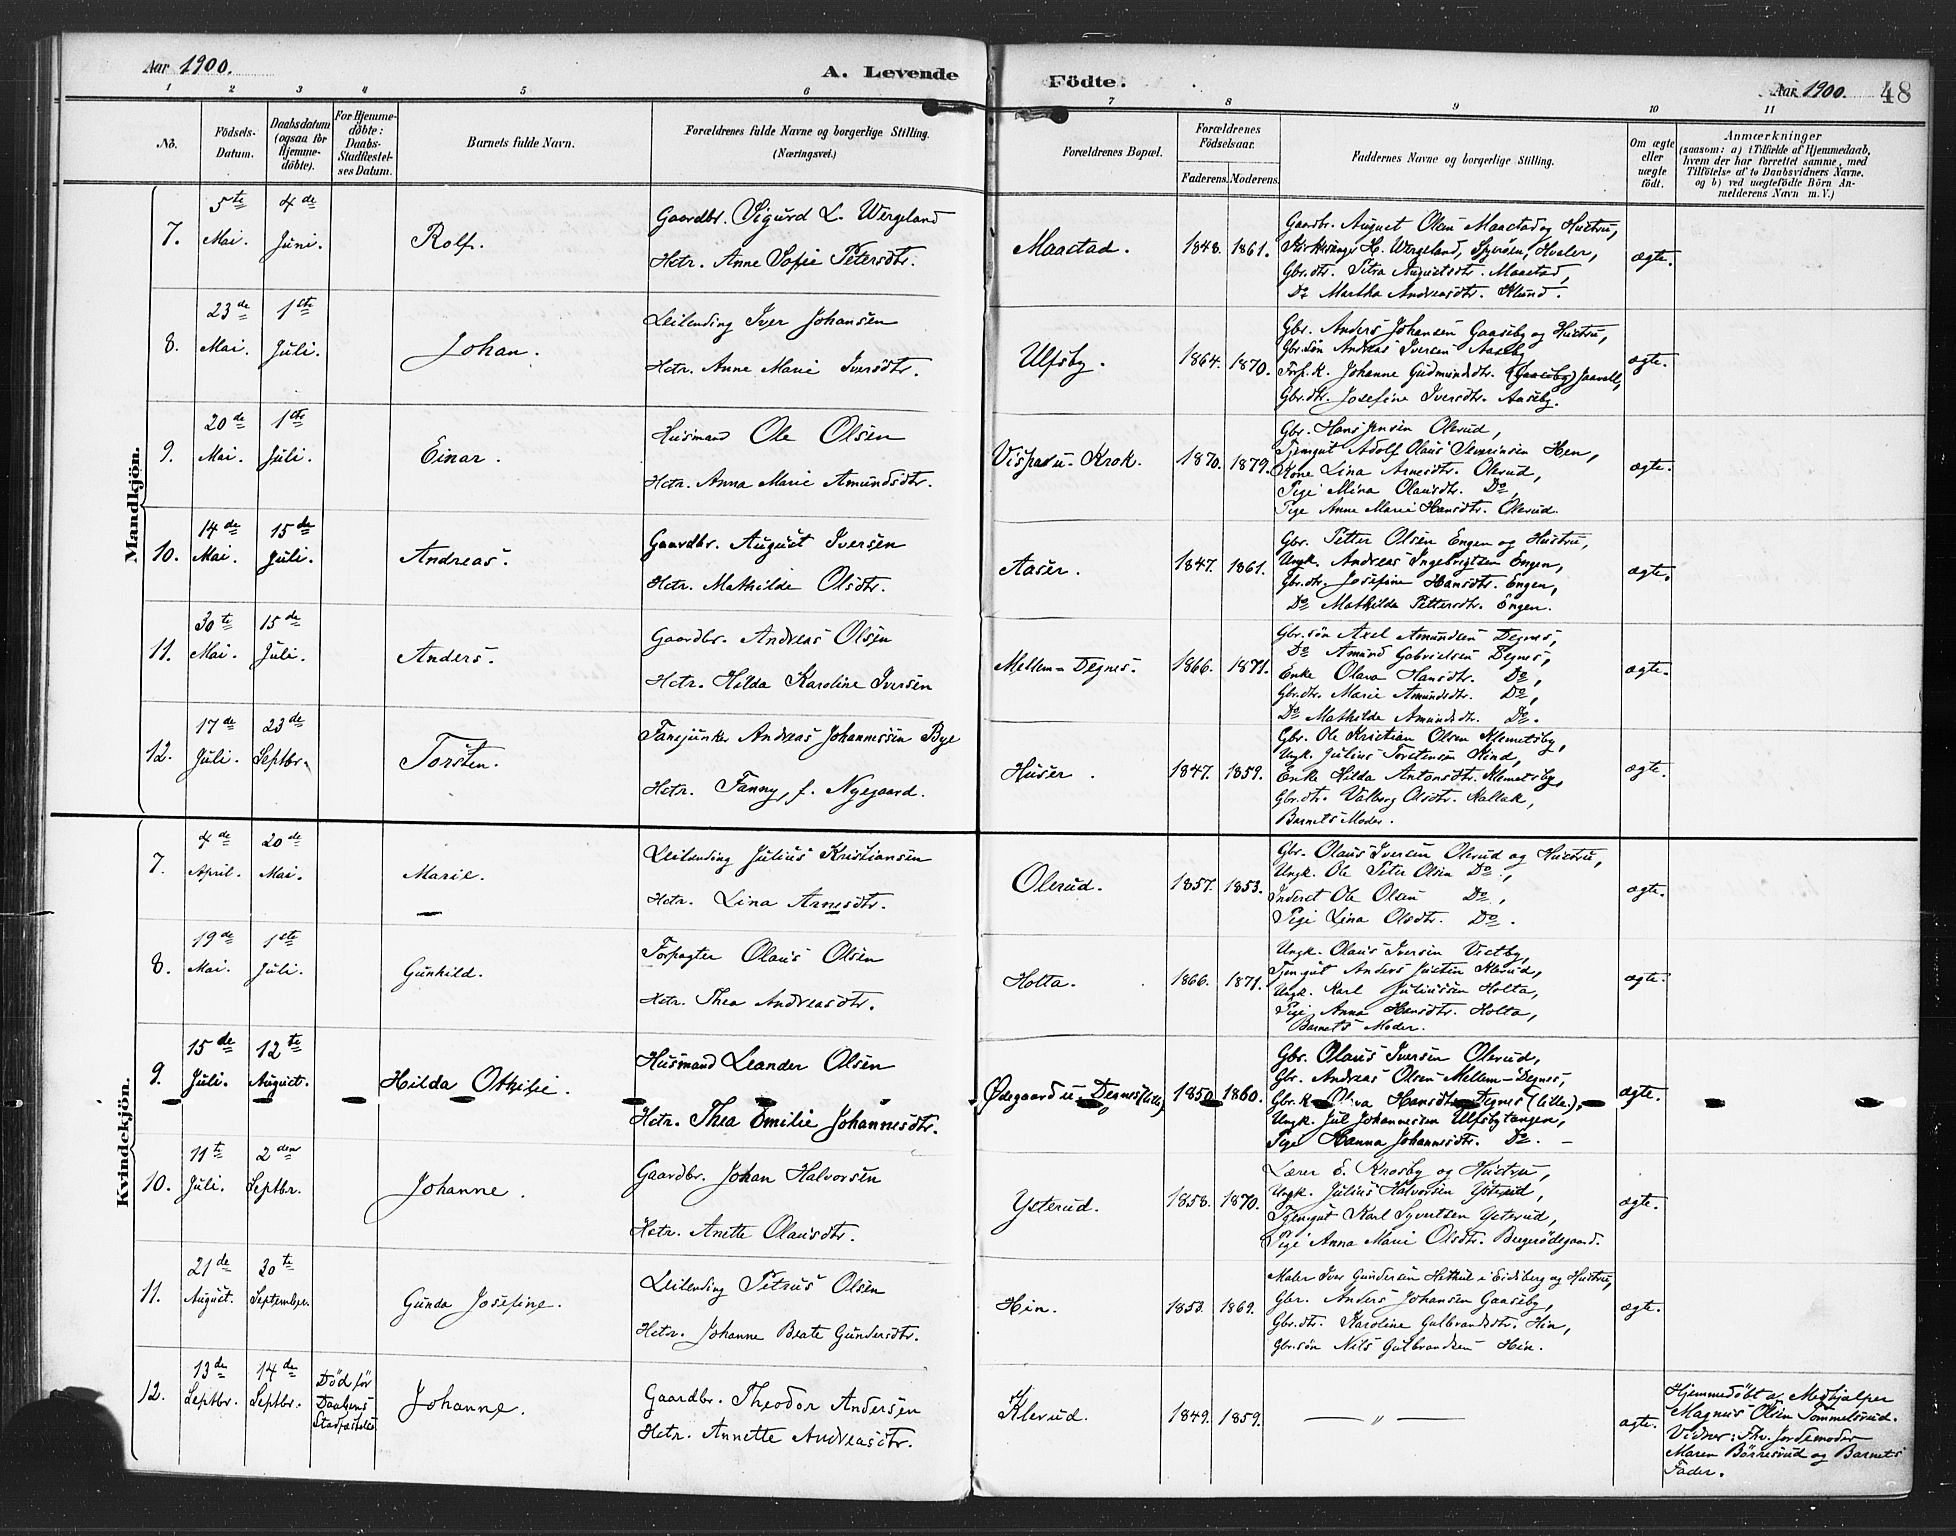 Aar 1900.
A. Levende
Födte.
Aar 1900.
48
1 2 3 4 5 6 7 8 9 10 11
No.
Födsels-Datum.
Daabsdatum (ogsaa for Hjemme-döbte).
For Hjemme-döbte: Daabs-Stadfæstel-ses Datum.
Barnets fulde Navn.
Forældrenes fulde Navne og borgerlige Stilling. (Næringsvei.)
Forældrenes Bopæl.
Forældrenes Födselsaar.
Faderens. Moderens.
Faddernes Navne og borgerlige Stilling.
Om ægte eller uægte födt.
Anmærkninger
(saasom: a) i Tilfælde af Hjemmedaab,
hvem der har forrettet samme, med
Tilföielse af to Daabsvidners Navne.
og b) ved uægtefödte Börn An-
melderens Navn m. V.)
Mandkjön.
7.
5te Mai.
4de Juni.
Rolf.
Gaardbr. Sigurd L. Wergeland
Hstr. Anne Sofie Petersdtr.
Maastad.
1848. 1861.
Gaardbr. August Olsen Maastad og Hustru,
Kirkesanger H. Wergeland, Spjerøen, Hvaler,
Gbr.dtr. Petra Augustsdtr. Maastad,
Do Martha Andreasdtr. Klund.
ægte.
8.
23de Mai.
1ste Juli.
Johan.
Leilending Iver Johansen
Hstr. Anne Marie Iversdtr.
Ulfsby.
1864. 1870.
Gbr. Anders Johansen Gaaseby og Hustru,
Gbr.søn Andreas Iversen Aaseby
Forp.k. Johanne Gudmundsdtr. (Gaaseby)
Gbr.dtr. Josefine Iversdtr. Aaseby.
ægte.
9.
20de Mai.
1ste Juli.
Einar.
Husmand Ole Olsen
Hstr. Anna Marie Amundsdtr.
Krok.
1870. 1879.
Gbr. Hans Jensen Olerud,
Tjensgut Adolf Olaus Hen,
Kone Lina Arnesdtr. Olerud,
Pige Mina Olausdtr. Do,
Pige Anne Marie Hansdtr. Olerud.
ægte.
10.
14de Mai.
15de Juli.
Andreas.
Gaardbr. August Iversen
Hstr. Mathilde Olsdtr.
Aaser.
1847. 1861.
Gbr. Petter Olsen Engen og Hustru,
Ungk. Andreas Ingebrigtsen Engen,
Gbr.dtr. Josefine Hansdtr. Engen,
Do Mathilda Pettersdtr. Engen.
ægte.
11.
30te Mai.
15de Juli.
Anders.
Gaardbr. Andreas Olsen
Hstr. Hilda Karoline Iversen
Mellem-Degnes.
1866. 1871.
Gbr.søn Axel Amundsen Degnes,
Do Amund Gabrielsen Degnes,
Enke Olava Hansdtr. Do,
Gbr.dtr. Marie Amundsdtr. Do,
Do Mathilde Amundsdtr. Do.
ægte.
12.
17de Juli.
23de Septbr.
Torsten.
Fanejunker Andreas Johannessen Bye
Hstr. Fanny, f. Nygaard.
Huser.
1847. 1859.
Gbr. Ole Kristian Olsen Klemetsby,
Ungk. Julius Torstensen Hind,
Enke Hilda Antonsdtr. Klemetsby,
Gbr.dtr. Valborg Olsdtr. Kallak,
Barnets Moder.
ægte.
Kvindekjön.
7.
4de April.
20de Mai.
Marie.
Leilending Julius Kristiansen
Hstr. Lina Arnesdtr.
Olerud.
1857. 1853.
Gbr. Olaus Iversen Olerud og Hustru,
Ungk. Ole Peter Olsen Do,
Inderst Ole Olsen Do,
Pige Lina Olsdtr. Do.
ægte.
8.
19de Mai.
1ste Juli.
Gunhild.
Forpagter Olaus Olsen
Hstr. Thea Andreasdtr.
Holta.
1866. 1871.
Ungk. Olaus Iversen Vestby,
Tjensgut Anders Justin Klerud,
Ungk. Karl Juliussen Holta,
Pige Anna Hansdtr. Holta,
Barnets Moder.
ægte.
9.
15de Juli.
12te August.
Hilda Othilie.
Husmand Leander Olsen
Hstr. Thea Emilie Johannesdtr.
Ødegaard u. Degnes (lille)
1850. 1860.
Gbr. Olaus Iversen Olerud,
Gbr. Andreas Olsen Mellem-Degnes,
Gbr.k. Olava Hansdtr. Degnes (lille),
Ungk. Jul Johannessen Ulfsbytangen,
Pige Hanna Johannesdtr. Do.
ægte.
10.
11te Juli.
2den Septbr.
Johanne.
Gaardbr. Johan Halvorsen
Hstr. Anette Olausdtr.
Ysterud.
1858. 1870.
Lærer E. Krosby og Hustru,
Ungk. Julius Halvorsen Ysterud,
Tjensgut Karl Syvertsen Ysterud,
Pige Anna Marie Olsdtr. Bergerødegaard.
ægte.
11.
21de August.
30te September.
Gunda Josefine.
Leilending Petrus Olsen
Hstr. Johanne Beate Gundersdtr.
Hin.
1853. 1869.
Maler Iver Gundersen i Eidsberg og Hustru,
Gbr. Anders Johansen Gaaseby,
Gbr.dtr. Karoline Gulbrandsdtr. Hin,
Gbr.søn Nils Gulbrandsen Hin.
ægte.
12.
13de Septbr.
14de Septbr.
Död før Daabens Stadfæstelse
Johanne.
Gaardbr. Theodor Andersen
Hstr. Annette Andreasdtr.
Klerud.
1849. 1859.
— „ —
ægte.
Hjemmedöbt af Medhjælper
Magnus Olsen Tommelsrud.
Vidner: Jordemoder
Maren Børresrud og Barnets
Fader.